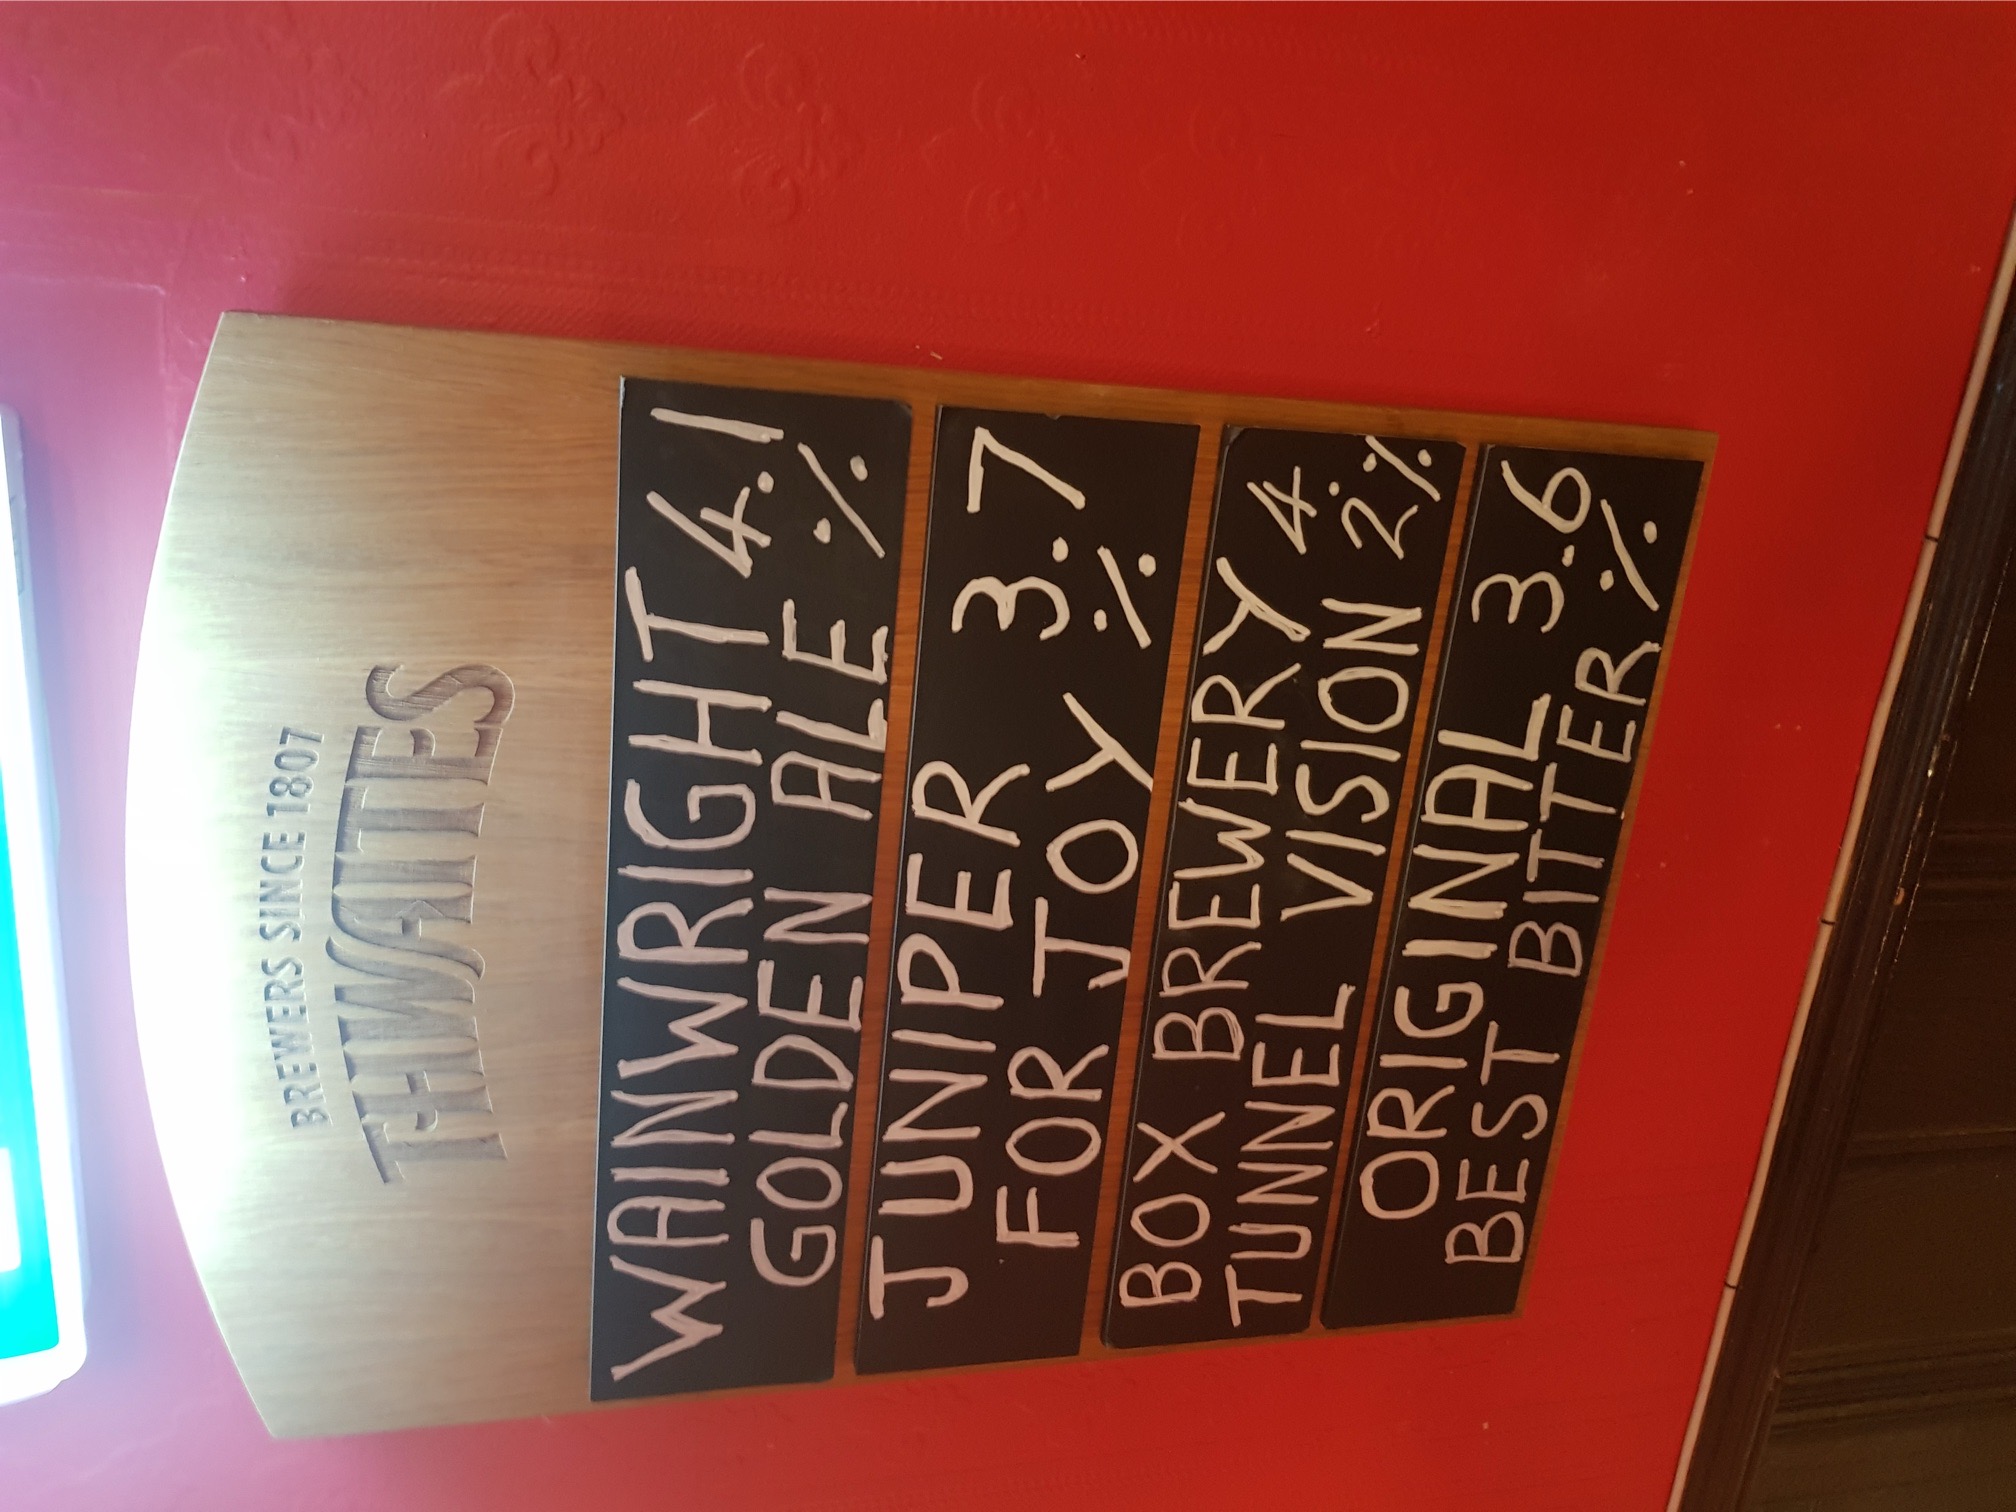 BREWERS SINCE 1807
THWAITES
WAINWRIGHT 4.1
GOLDEN ALE %
JUNIPER 3.7
FOR JOY %
BOX BREWERY 4.
TUNNEL VISION 2%
ORIGINAL 3.6
BEST BITTER %